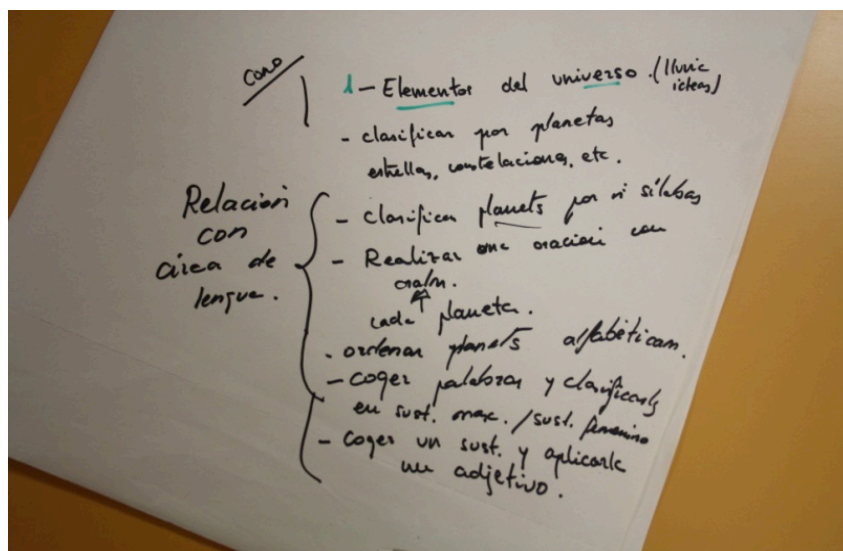 Cono
1 - Elementos del universo. (lluvia
ideas)
- clasificar por planetas
estrellas, constelaciones, etc.
Relación
con
área de
lengua.
- Clasificar planets por nº sílabas
- Realizar una oración con
oralm.
cada planeta.
- ordenar planets alfabéticam.
- coger palabras y clasificarls
en sust. masc. / sust. femenino
- coger un sust. y aplicarle
un adjetivo.